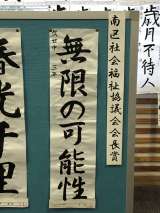 歳月不待人
南区社会福祉協議会会長賞
無限の可能性
春光千里